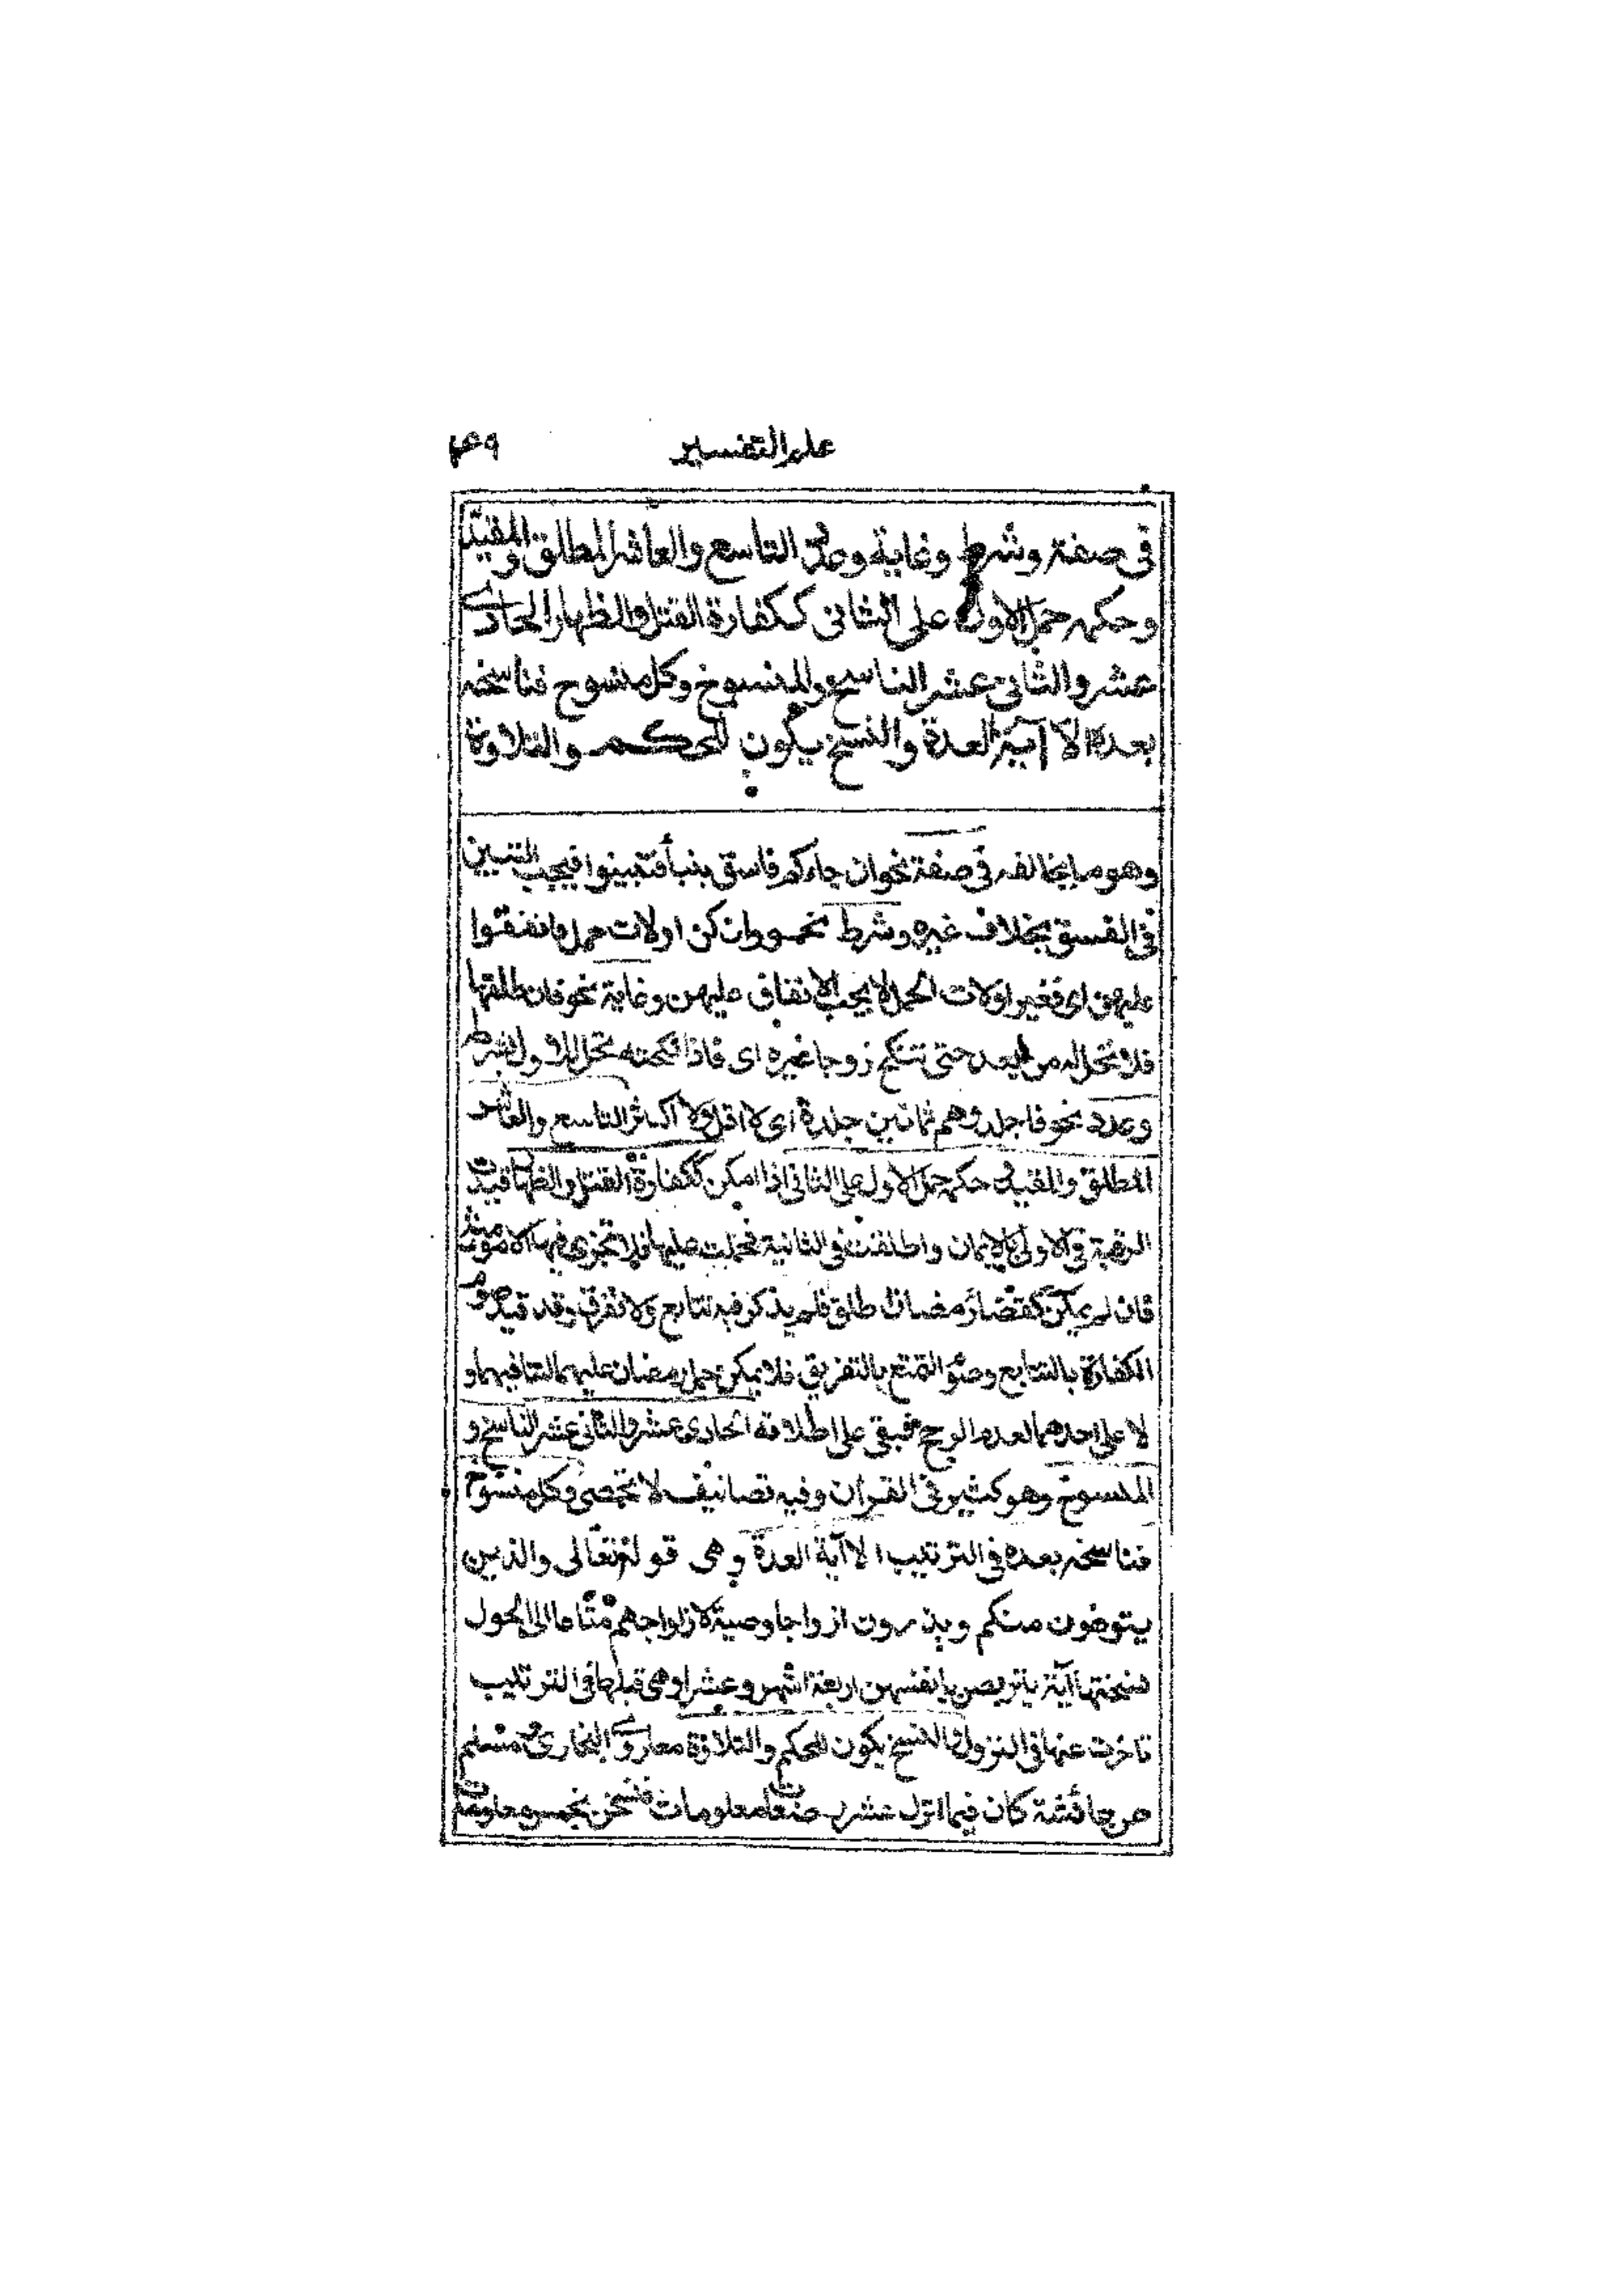 علم التفسير
٤٩
في صفة وشرط وغاية وعدد التاسع والعاشر المطلق والمقيد
وحكمه حمل الاول على الثاني ككفارة القتل والظهار الحادي
عشر والثاني عشر الناسخ والمنسوخ وكل منسوخ فناسخه
بعده الا آية العدة والنسخ يكون للحكم والتلاوة
وهو ما يخالفه في صفة نحو ان جاءكم فاسق بنبأ فتبينوا فيجب التبيين
في الفسق بخلاف غيره وشرط نحو وان كن اولات حمل فانفقوا
عليهن اى فغير اولات الحمل لا يجب الانفاق عليهن وغاية نحو فان طلقها
فلا تحل له من بعد حتى تنكح زوجا غيره اى فاذا نكحته تحل للاول بشرطه
وعدد نحو فاجلدوهم ثمانين جلدة اى لا اقل ولا اكثر التاسع والعاشر
المطلق والمقيد حكمه حمل الاول على الثاني اذا امكن ككفارة القتل والظهار قيدت
الرقبة في الاولى بالايمان واطلقت في الثانية فحملت عليها فلا تجزى فيها الا مومنة
فان لم يمكن كقضاء رمضان اطلق فلم يذكر فيه تتابع ولا تفرق وقد قيد صوم
الكفارة بالتتابع وصوم التمتع بالتفريق فلا يمكن حمل رمضان عليهما لتنافيهما و
لا على احدهما لعدم المرجح فبقى على اطلاقه الحادى عشر والثاني عشر الناسخ و
المنسوخ وهو كثير في القران وفيه تصانيف لا تحصى وكل منسوخ
فناسخه بعده في الترتيب الا آية العدة وهى قوله تعالى والذين
يتوفون منكم ويذرون ازواجا وصية لازواجهم متاعا الى الحول
نسختها آية يتربصن بانفسهن اربعة اشهر وعشرا وهى قبلها في الترتيب
تاخرت عنها في النزول والنسخ يكون للحكم والتلاوة معا روى البخارى ومسلم
عن عائشة كان فيما انزل عشر رضعات معلومات فنسخن بخمس معلومات